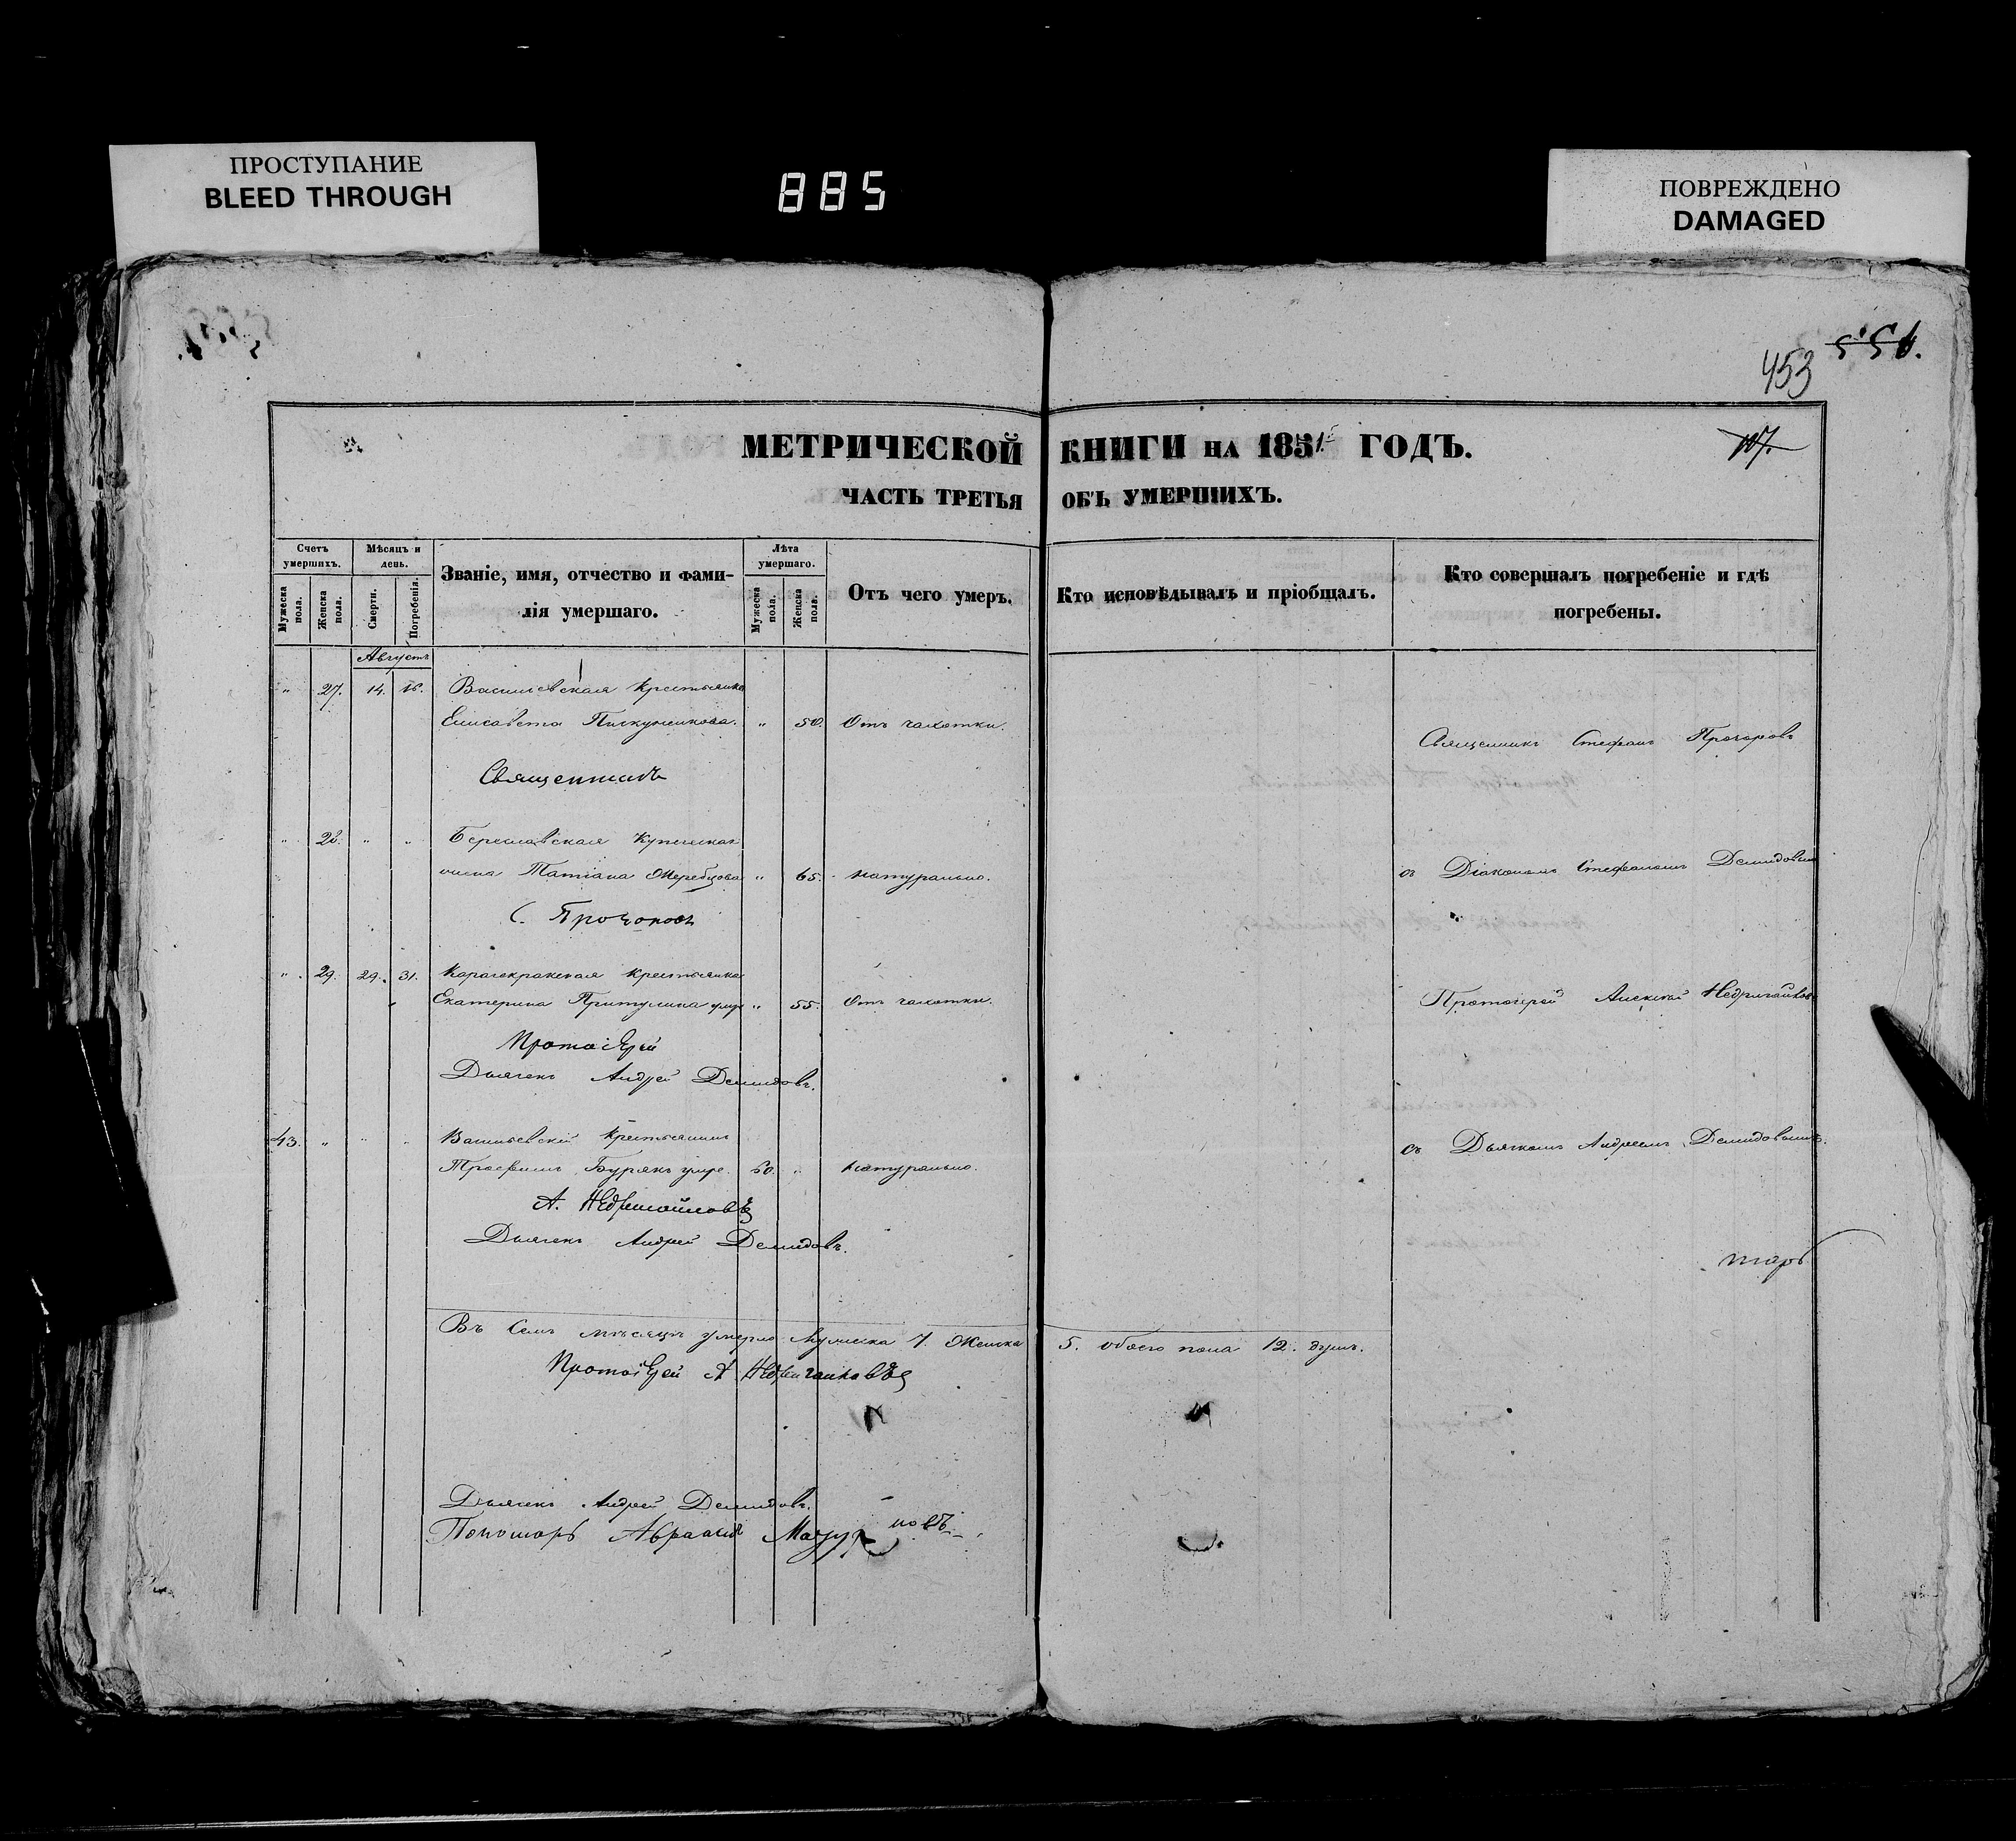 ПРОСТУПАНИЕ
BLEED THROUGH
885
ПОВРЕЖДЕНО
DAMAGED
453
107.
МЕТРИЧЕСКОЙ КНИГИ НА 1851 ГОДЪ.
ЧАСТЬ ТРЕТЬЯ ОБЪ УМЕРШИХЪ.
Счетъ умершихъ.
Мужеска пола.
Женска пола.
Мѣсяцъ и день.
Смерти.
Погребенія.
Званіе, имя, отчество и фамилія умершаго.
Лѣта умершаго.
Мужеска пола.
Женска пола.
Отъ чего умеръ.
Кто исповѣдывалъ и пріобщалъ.
Кто совершалъ погребеніе и гдѣ погребены.
Августъ
" 27. 14. 16. Васильевская Крестьянка
Елисавета " 50. Отъ чахотки.
Священникъ Стефанъ Прохоровъ
Священникъ
" 28. " " Береславская Купеческая
Татіана Жеребцова " 65. натурально.
съ Діакономъ Стефаномъ Демидовымъ
С. Прохоровъ
" 29. 29. 31. Крестьянка
Екатерина Притулина умре " 55. Отъ чахотки.
Протоіерей Алексій Недригайловъ
Протоіерей
Дьячекъ Андрей Демидовъ.
43. " " " Васильевскій Крестьянинъ
Трофимъ Бурякъ умре. 60. " натурально.
съ Дьячкомъ Андреемъ Демидовымъ.
А. Недригайловъ
Дьячекъ Андрей Демидовъ.
Въ семъ мѣсяцѣ умерло Мужеска 7. Женска 5. обоего пола 12. душъ.
Протоіерей А Недригайловъ
Дьячекъ Андрей Демидовъ.
Пономарь